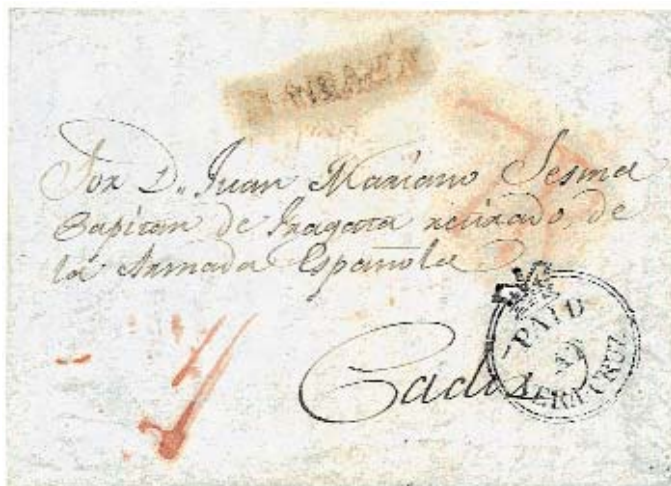 Sor D.n Juan Mariano Sesma
Capitan de Fragatta retirado de
la Armada Española
Cadiz
PAID
VERA CRUZ